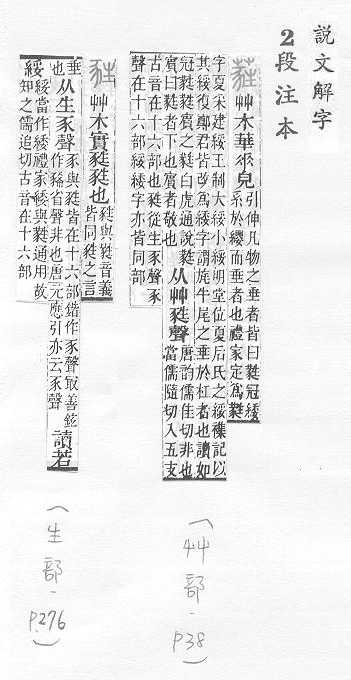 說文解字
2段注本
蕤 艸木華𠂹皃 引伸凡物之垂者皆曰蕤冠緌
系於纓而垂者也禮家定爲蕤
字夏采建緌王制大緌小緌明堂位夏后氏之緌襍記以
其綏復鄭君皆改爲緌字謂旄牛尾之垂於杠者也讀如
冠蕤蕤賓之蕤白虎通說蕤
賓曰蕤者下也賓者敬也
从艸甤聲 唐韵儒佳切非也
當儒隨切入五支
古音在十六部也甤從生豕聲豕
聲在十六部緌綏字亦皆同部
(艸部.p38)
甤 艸木實甤甤也 甤與蕤音義
皆同甤之言
垂
也
从生豕聲 豕與甤皆在十六部鍇作豕聲取善鉉
作豨省聲非也唐元應引亦云豕聲
讀若
綏 綏當作緌禮家緌與甤通用故
知之儒追切古音在十六部
(生部.p276)